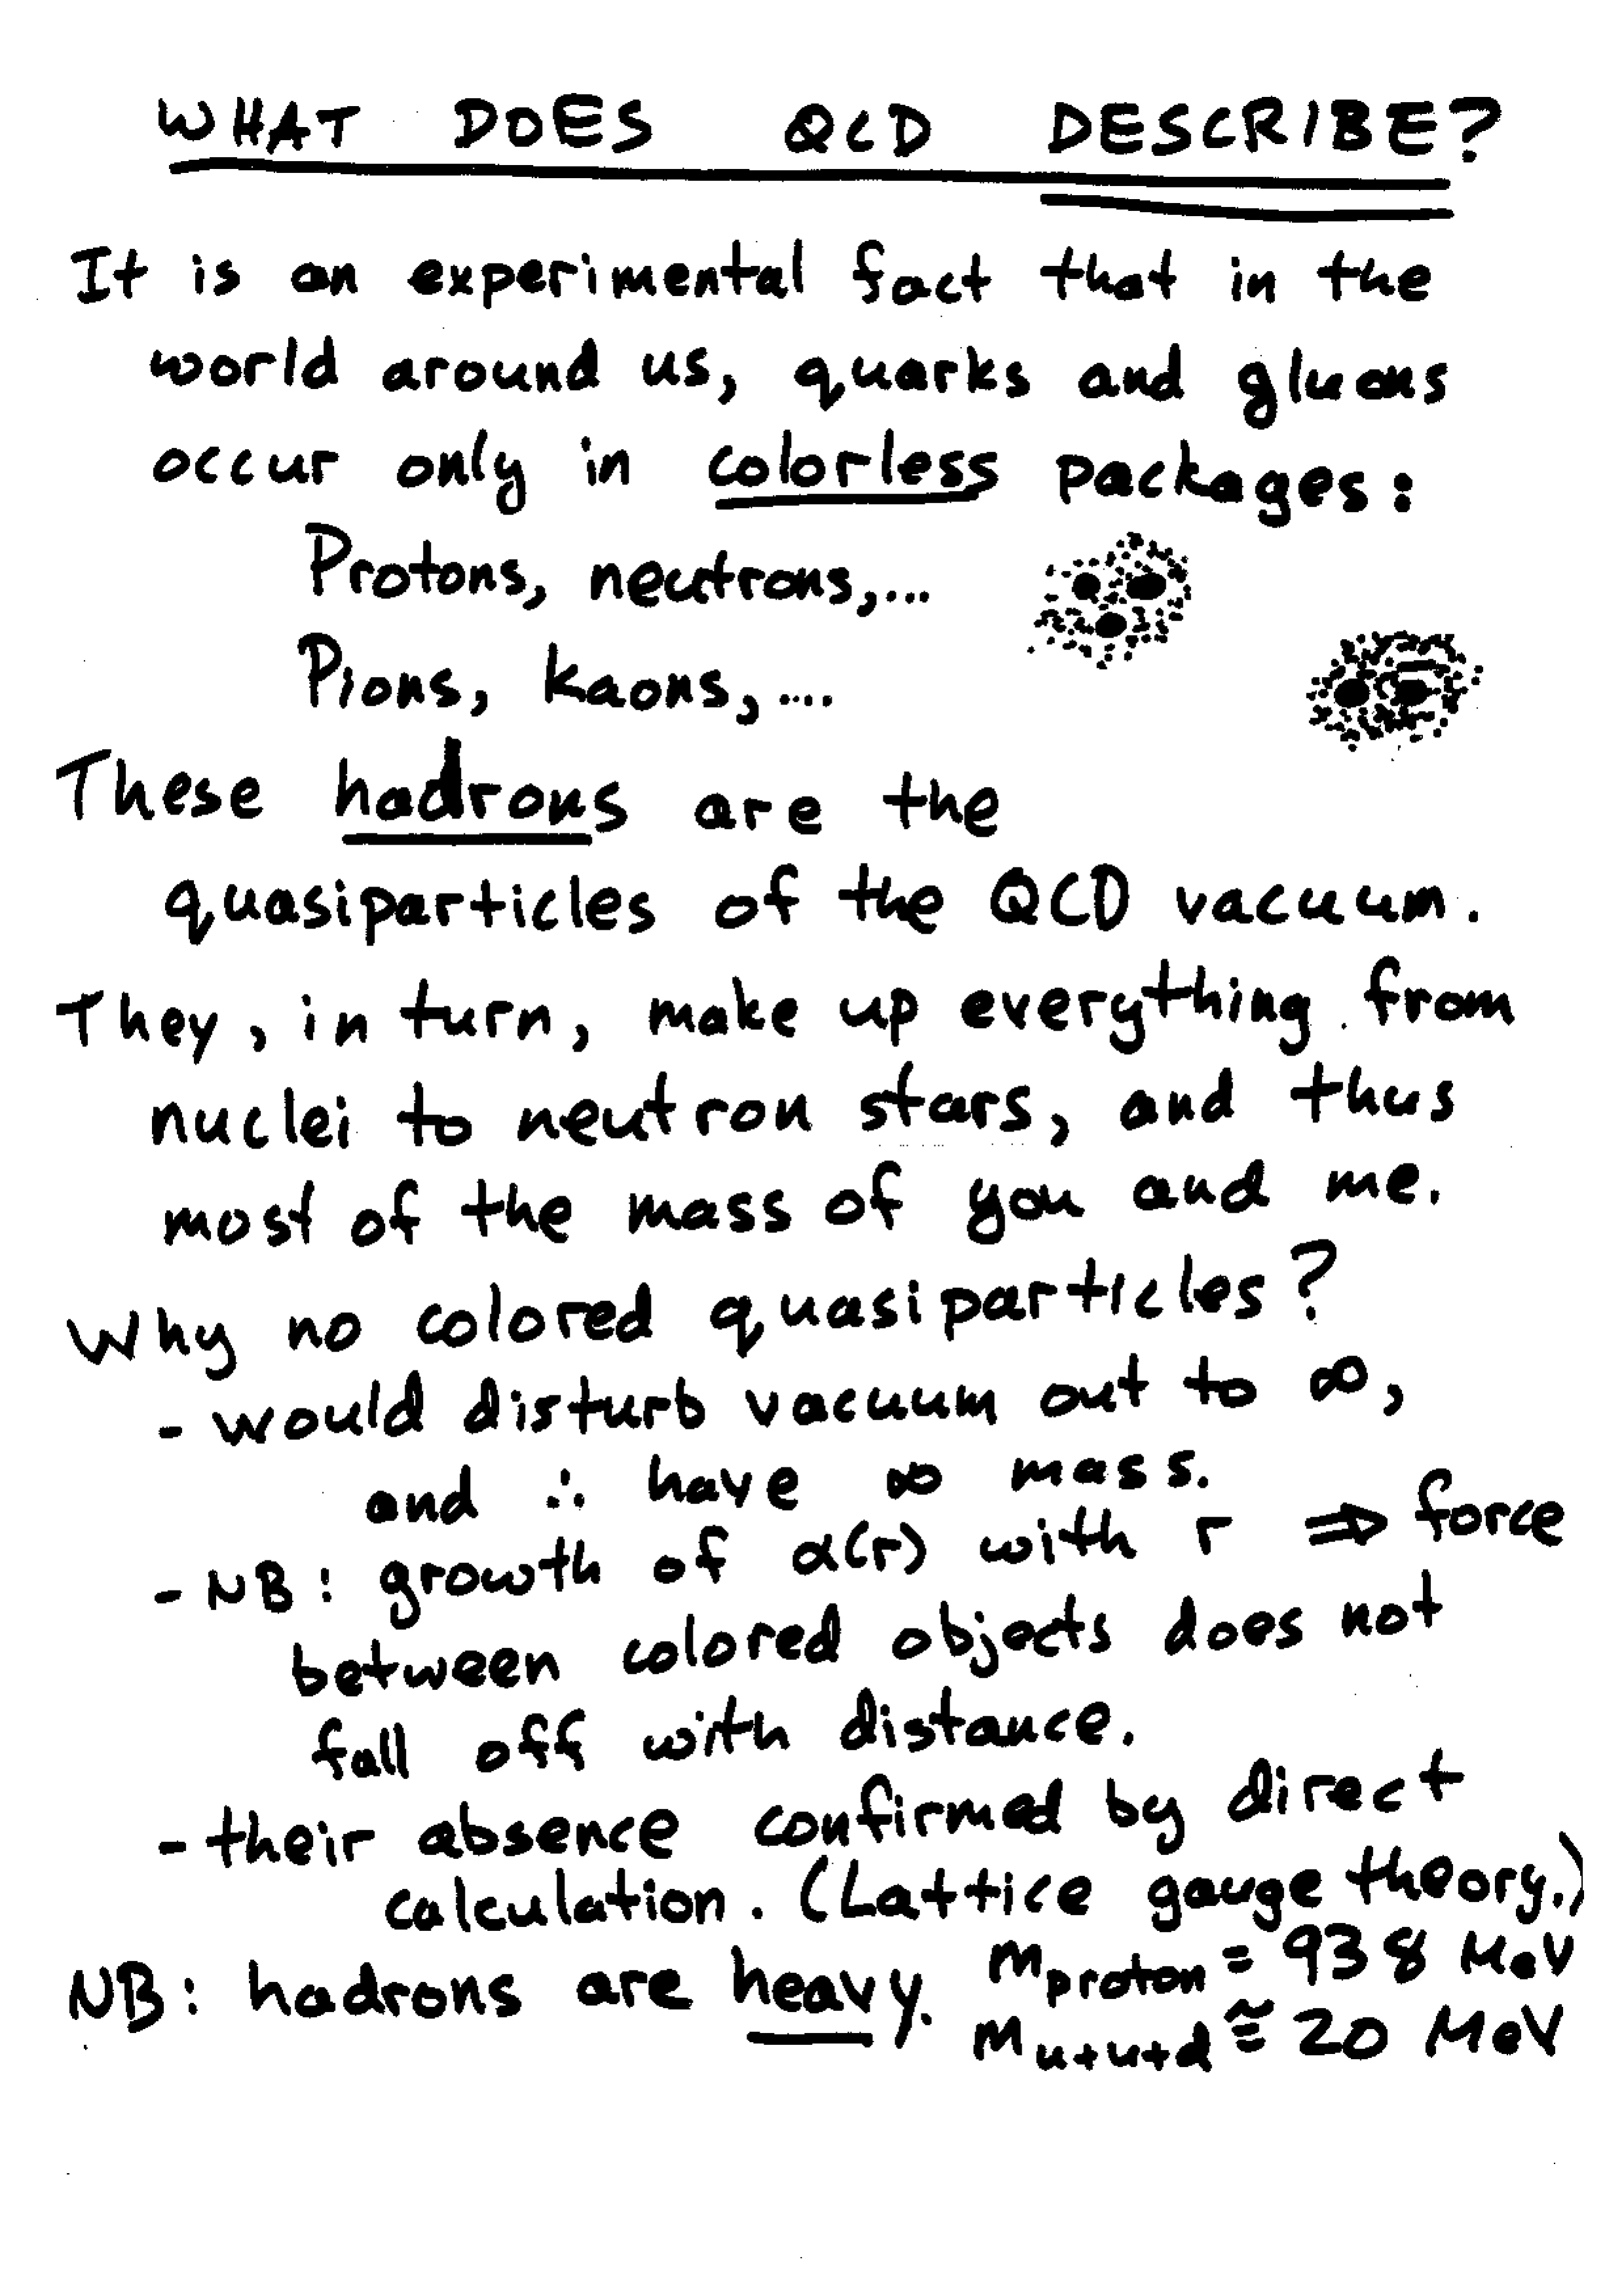 WHAT DOES QCD DESCRIBE?
It is an experimental fact that in the
world around us, quarks and gluons
occur only in colorless packages:
Protons, neutrons,...
Pions, kaons, ....
These hadrons are the
quasiparticles of the QCD vacuum.
They, in turn, make up everything from
nuclei to neutron stars, and thus
most of the mass of you and me.
Why no colored quasiparticles?
- would disturb vacuum out to ∞,
and ∴ have ∞ mass.
- NB: growth of α(r) with r ⇒ force
between colored objects does not
fall off with distance.
- their absence confirmed by direct
calculation. (Lattice gauge theory.)
NB: hadrons are heavy. m proton = 938 MeV
m u+u+d ≅ 20 MeV